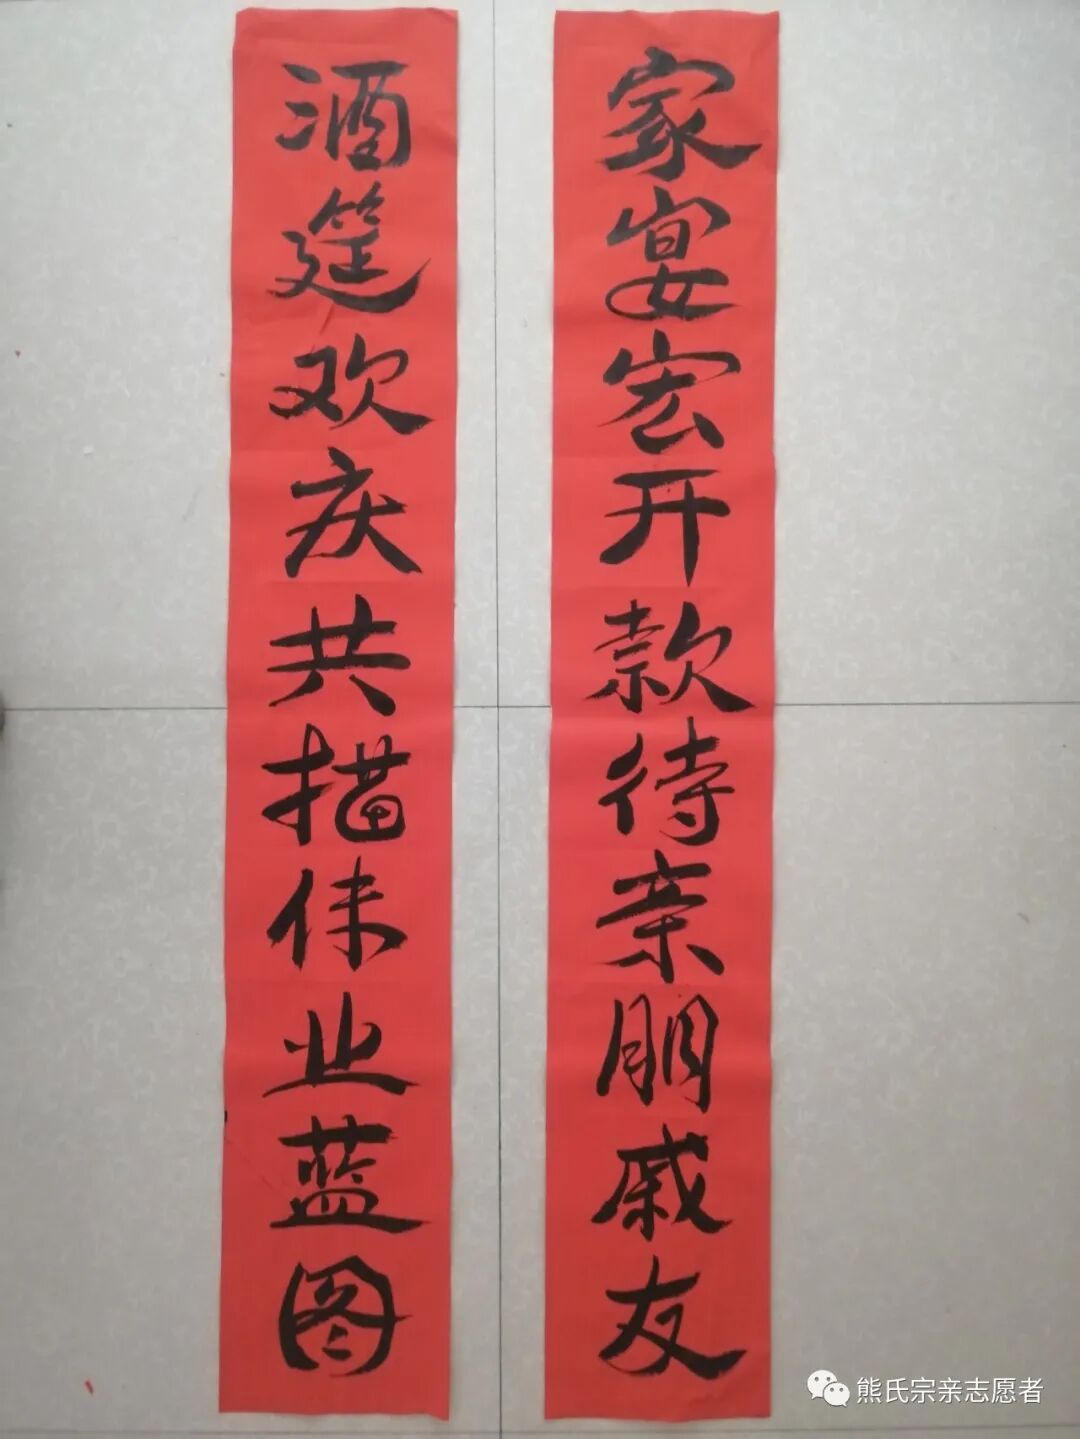 家宴宏开款待亲朋戚友
酒筵欢庆共描伟业蓝图
熊氏宗亲志愿者